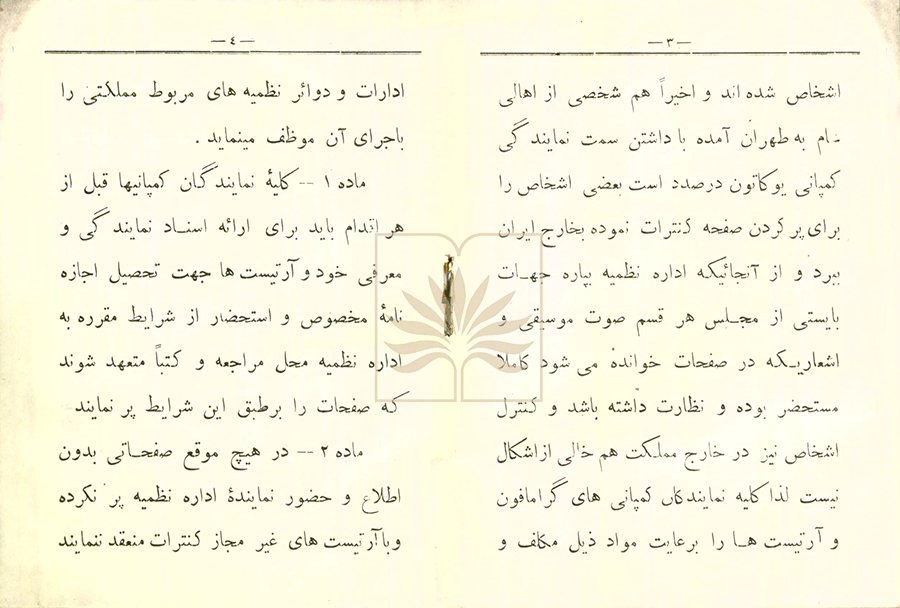 — ۳ —
اشخاص شده اند و اخیراً هم شخصی از اهالی
شام به طهران آمده با داشتن سمت نمایند گی
کمپانی یوکاتون درصدد است بعضی اشخاص را
برای پر کردن صفحه کنترات نموده بخارج ایران
ببرد و از آنجائیکه اداره نظمیه بپاره جهـات
بایستی از مجـلس هر قسم صوت موسیقی و
اشعاریـکه در صفحات خوانده می شود کاملا
مستحضر بوده و نظارت داشته باشد و کنترل
اشخاص نیز در خارج مملـکت هم خالی ازاشکال
نیست لذا کلیه نمایندکان کمپانی های گرامافون
و آرتیست هـا را برعایت مواد ذیل مکلف و
— ٤ —
ادارات و دوائر نظمیه های مربوط مملکتی را
باجرای آن موظف مینماید .
ماده ۱ -- کلیهٔ نمایندگان کمپانیها قبل از
هر اقدام باید برای ارائه اسنـاد نمایند گی و
معرفی خود و آرتیست ها جهت تحصیل اجازه
نامهٔ مخصوص و استحضار از شرایط مقرره به
اداره نظمیه محل مراجعه و کتباً متعهد شوند
که صفحات را برطبق این شرایط پر نمایند
ماده ۲ -- در هیچ موقع صفحـاتی بدون
اطلاع و حضور نمایندهٔ اداره نظمیه پر نکرده
وباآرتیست های غیر مجاز کنترات منعقد ننمایند